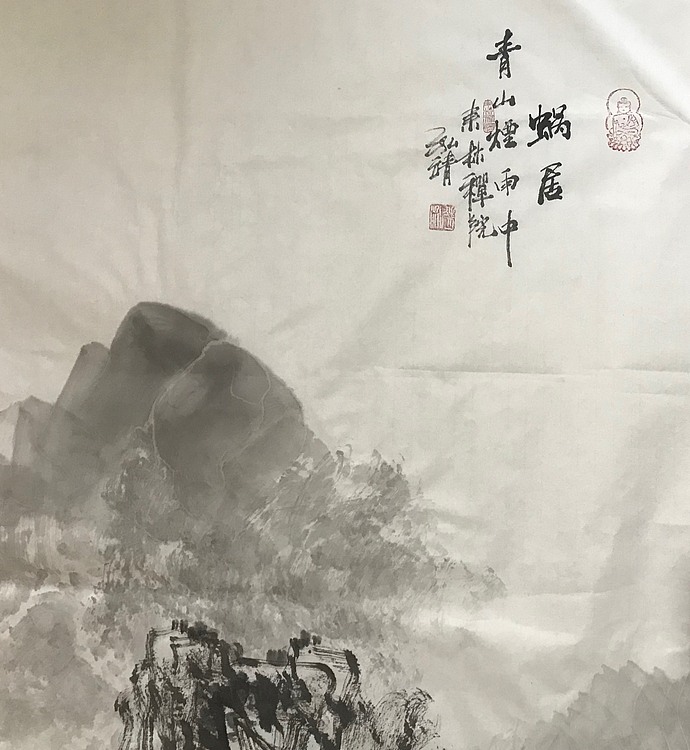 蝸居
青山煙雨中
東林禪院